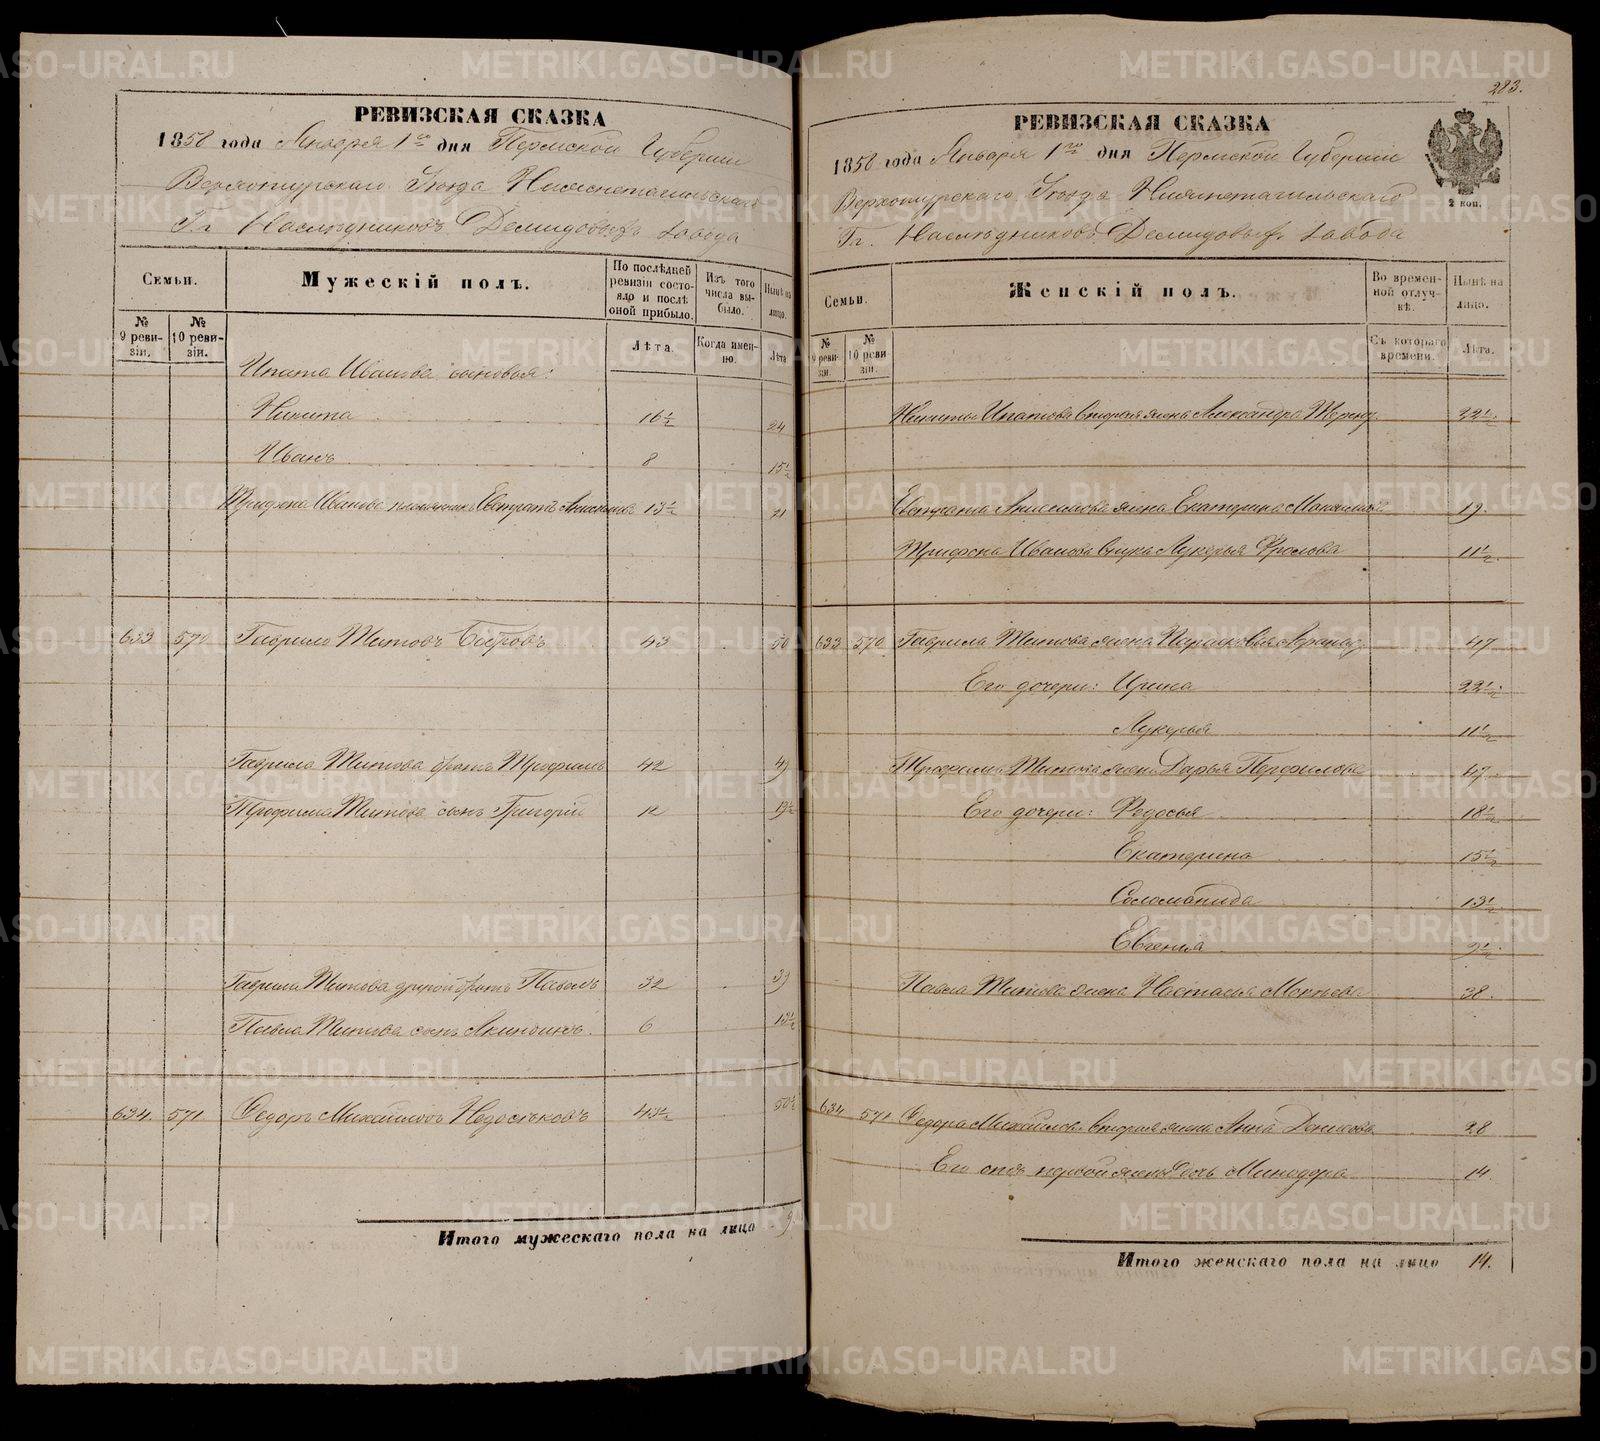 РЕВИЗСКАЯ СКАЗКА
1858 года Января 1го дня Пермской Губернии
Верхотурскаго Уѣзда Нижнетагильскаго
Гг. Наслѣдниковъ Демидовыхъ завода
Семьи.
Мужескій полъ.
По послѣдней ревизіи состояло и послѣ оной прибыло.
Изъ того числа выбыло.
Нынѣ на лицо.
№ 9 ревизіи.
№ 10 ревизіи.
Лѣта.
Когда именно.
Лѣта
Ипата Иванова сыновья:
Никита 16½ 24
Иванъ 8 15½
Трифона Иванова племянникъ Евстратъ Анисимовъ 13½ 21
633 570 Гаврило Титовъ 43 50
Гаврила Титова братъ Трофимъ 42 49
Трофима Титова сынъ Григорій 12 19½
Гаврила Титова другой братъ Павелъ 32 39
Павла Титова сынъ Акиндинъ 6 13½
634. 571 Федоръ Михайловъ Недосѣковъ 43½ 50½
Итого мужескаго пола на лицо 9
283.
РЕВИЗСКАЯ СКАЗКА
1858 года Января 1го дня Пермской Губерніи
Верхотурскаго Уѣзда Нижнетагильскаго
Гг. Наслѣдниковъ Демидовыхъ завода
2 коп.
Семьи.
Женскій полъ.
Во временной отлучкѣ.
Нынѣ на лицо.
№ 9 ревизіи.
№ 10 ревизіи.
Съ котораго времени.
Лѣта.
Никиты Ипатова вторая жена Александра 22½.
Евстрата Анисимова жена Екатерина 19.
Трифона Иванова внука Лукерья Фролова 11½.
633 570 Гаврила Титова жена Парасковья 47
Его дочери: Ирина 22½.
Лукерья 11½
Трофима Титова жена Дарья Перфилова 47.
Его дочери: Федосья 18½
Екатерина 15½
Соломанида 13½
Евгенія 9½.
Павла Титова жена Настасья 38.
634 571 Федора Михайлова вторая жена Анна Денисова 28
Его отъ первой жены дочь Минодора 14.
Итого женскаго пола на лицо 14.
METRIKI.GASO-URAL.RU